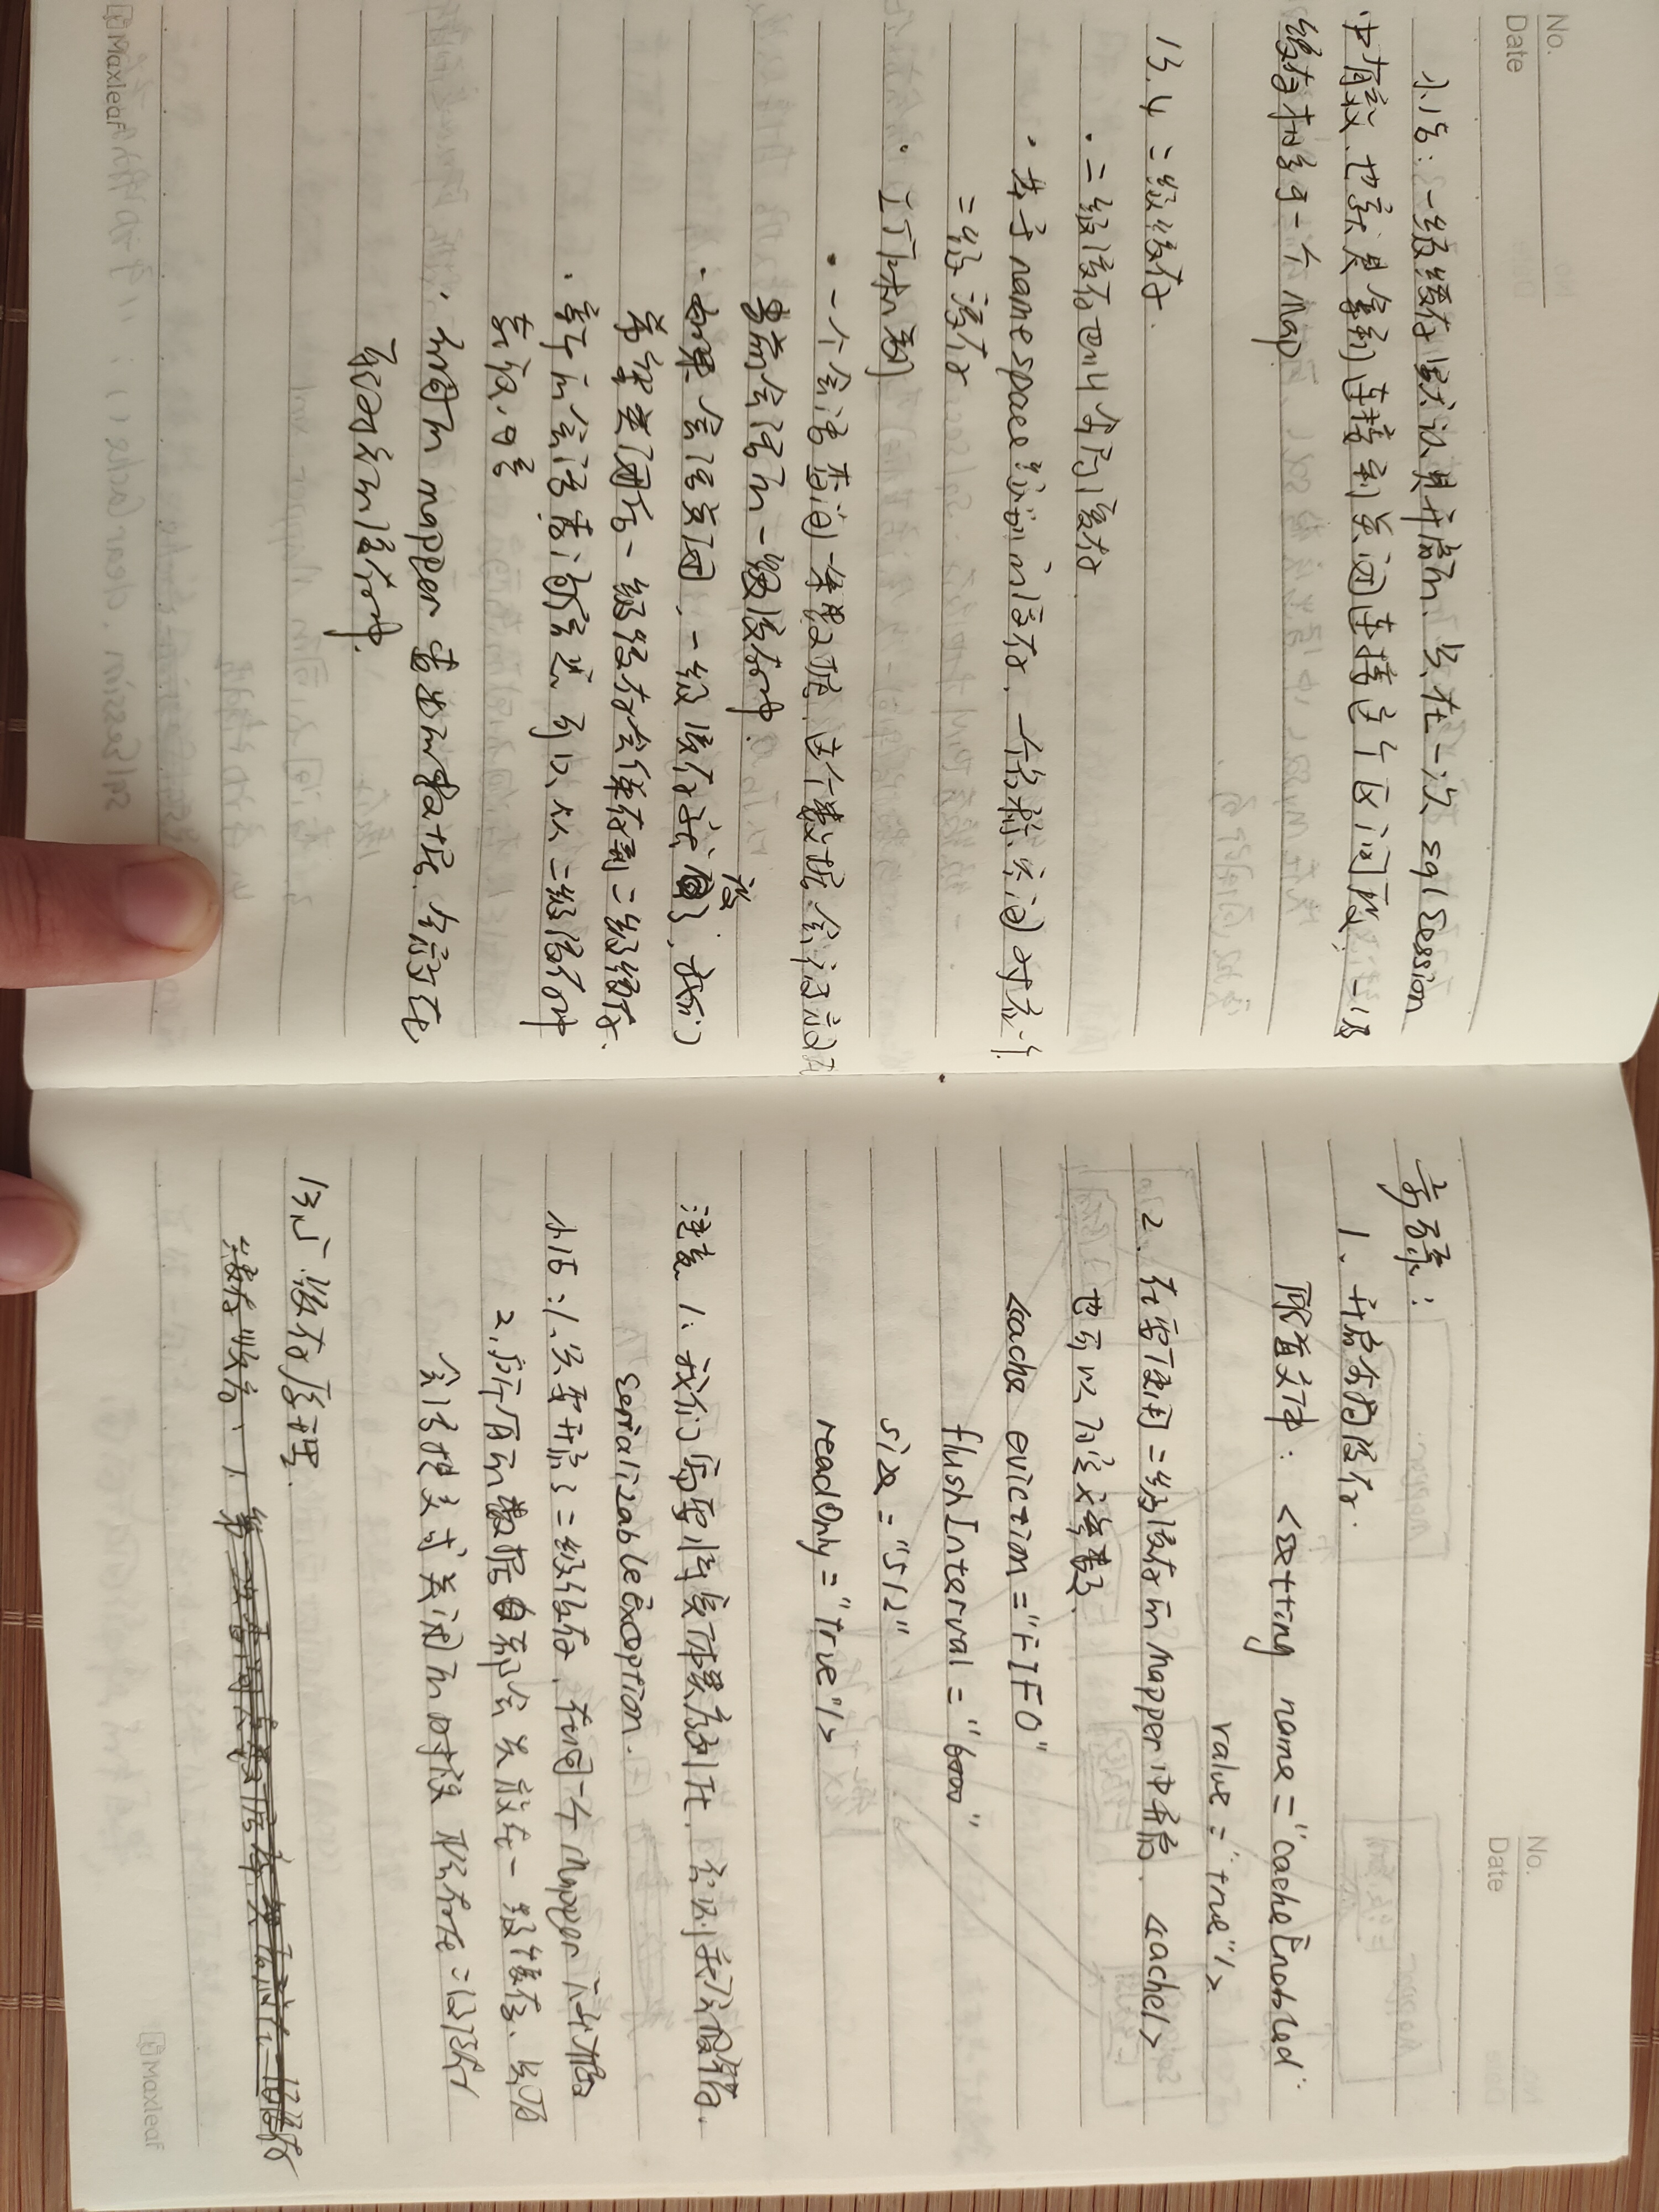 No.
Date
小结：一级缓存默认是开启的、只在一次 sqlSession
中有效、也就是拿到连接到关闭连接这个区间段，一级
缓存相当于一个 Map
13.4 二级缓存.
· 二级缓存也叫全局缓存
· 基于 namespace 级别的缓存，一个名称空间对应一个
二级缓存
· 工作机制
· 一个会话查询一条数据，这个数据会被放在
当前会话的一级缓存中.
· 如果会话关闭，一级缓存就没了，我们
希望关闭后一级缓存会保存到二级缓存.
· 新的会话查询信息，可以从二级缓存中
获取内容
· 不同的 mapper 查出的数据，会放在
自己对应的缓存中.
Maxleaf
No.
Date
步骤：
1、开启全局缓存.
配置文件： <setting name="cacheEnabled"
value="true"/>
2、在要使用二级缓存的 Mapper 中开启. <cache/>
也可以自定义参数.
<cache eviction="FIFO"
flushInterval="6000"
size="512"
readOnly="True"/>
注意 1、我们需要将实体类序列化，否则就会报错.
serializable Exception.
小结：1、只要开启了二级缓存，在同一个 Mapper 下有效
2、所有的数据都会先放在一级缓存、只有
会话提交或关闭的时候
13.5 缓存原理.
缓存顺序：1.
Maxleaf